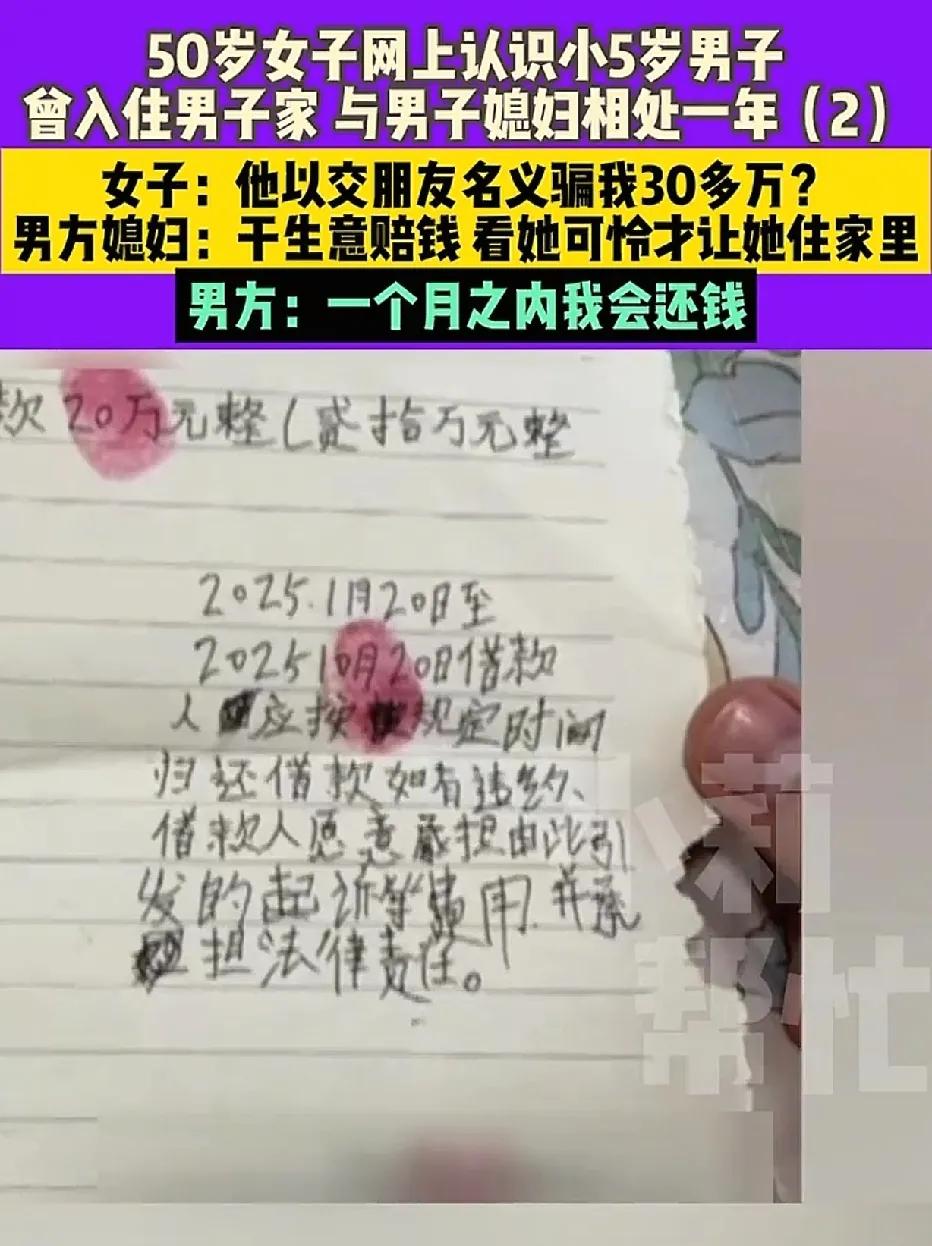 50岁女子网上认识小5岁男子
曾入住男子家 与男子媳妇相处一年（2）
女子：他以交朋友名义骗我30多万？
男方媳妇：干生意赔钱 看她可怜才让她住家里
男方：一个月之内我会还钱
款20万元整(贰拾万元整
2025.1月20日至
2025 10月20日借款
人应按规定时间
归还借款如有违约、
借款人愿意承担由此引
发的起诉等费用.并承
担法律责任。
小莉
帮忙